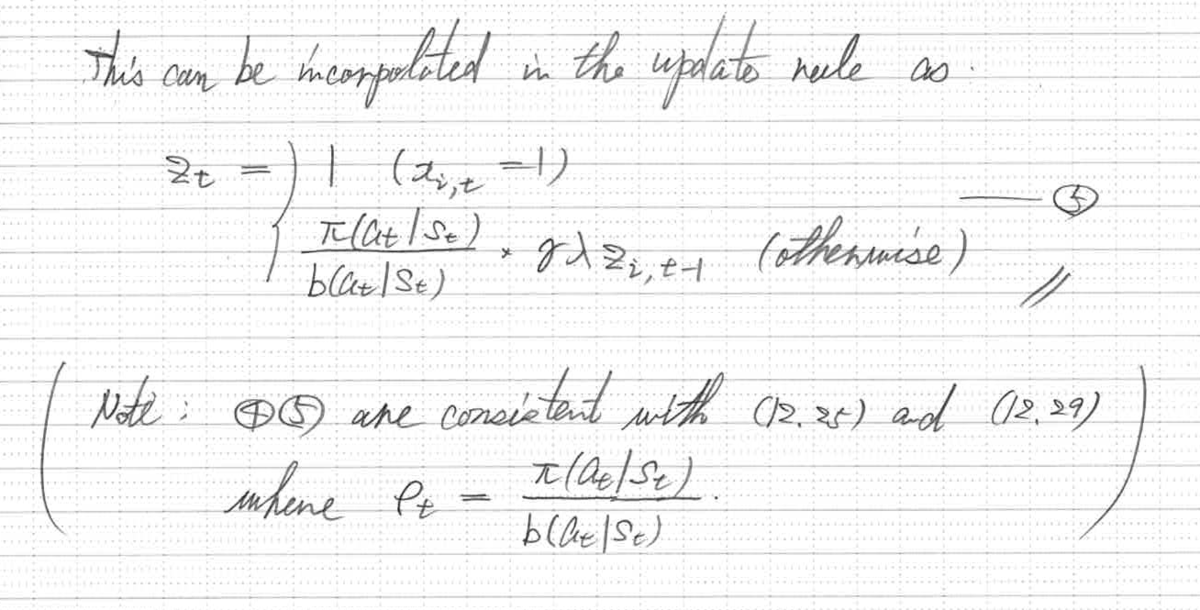 This can be incorpolated in the update rule as.
z_t = { 1 (x_{i,t} = 1)
π(a_t|s_t) / b(a_t|s_t) * γλz_{i,t-1} (otherwise) —— ⑤ //
( Note : ④⑤ are consistent with (12.25) and (12.29)
where ρ_t = π(a_t|s_t) / b(a_t|s_t) . )